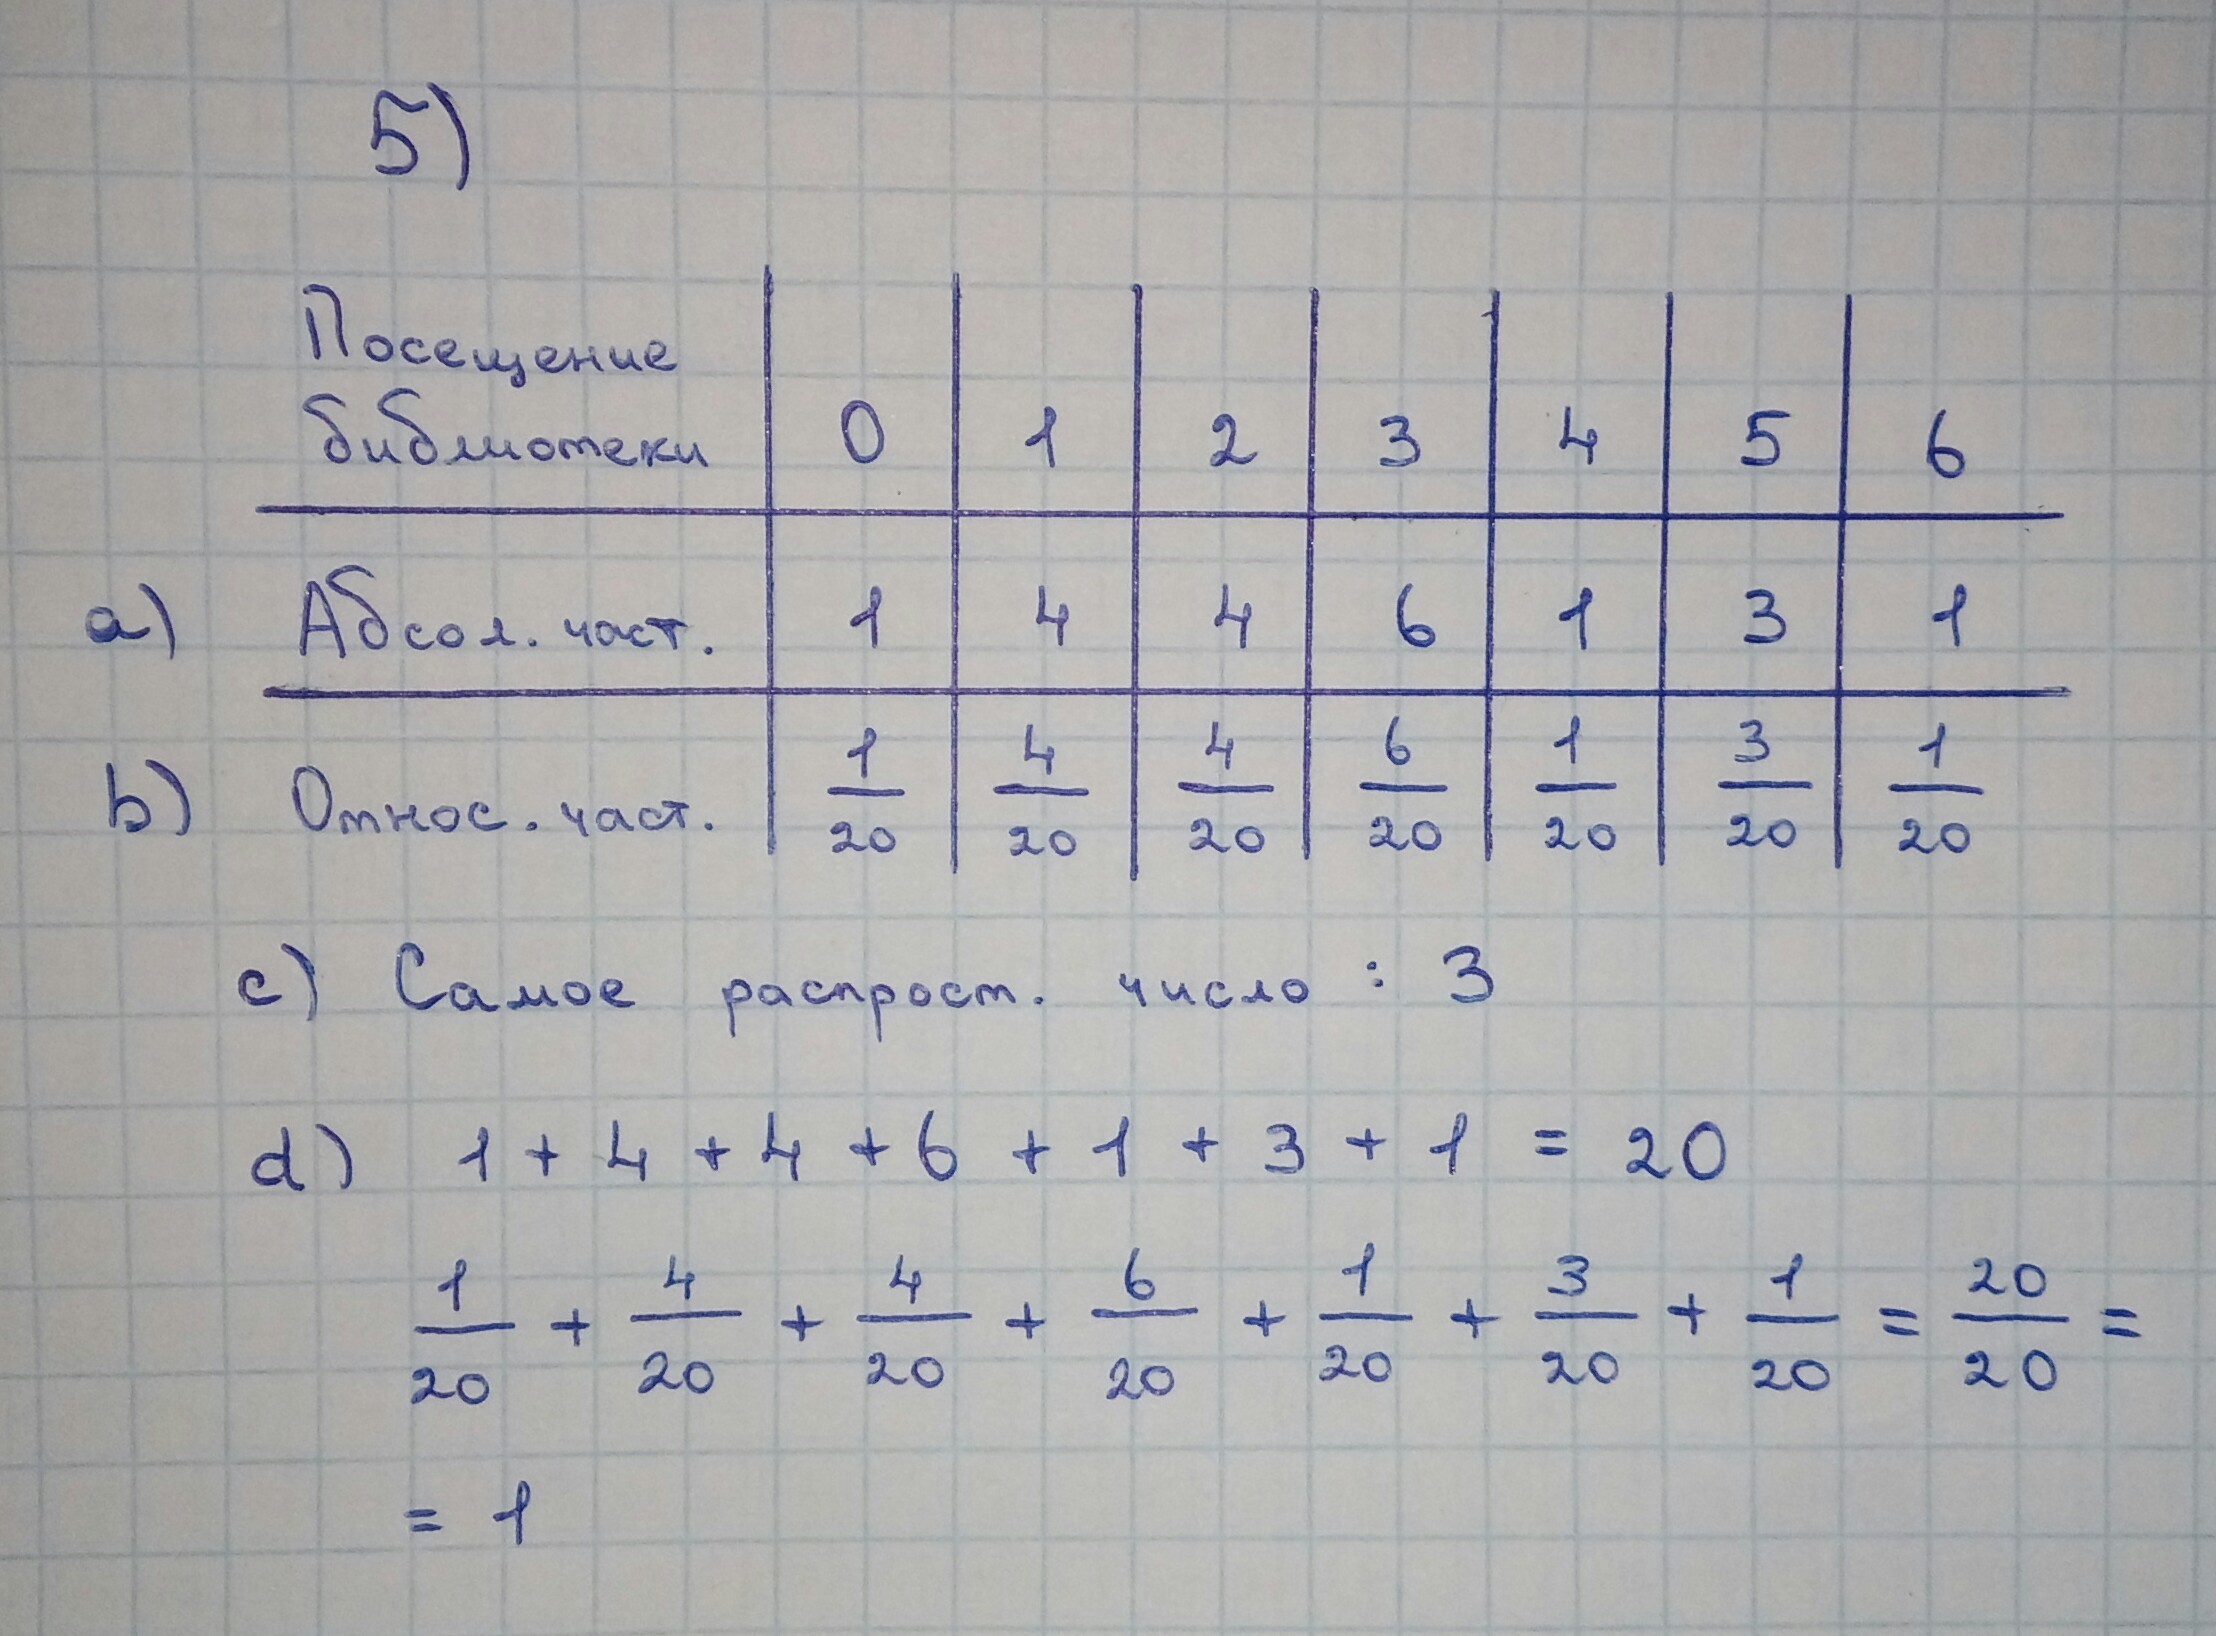 5)
Посещение
библиотеки 0 1 2 3 4 5 6
a) Абсол. част. 1 4 4 6 1 3 1
b) Относ. част. 1/20 4/20 4/20 6/20 1/20 3/20 1/20
c) Самое распрост. число : 3
d) 1 + 4 + 4 + 6 + 1 + 3 + 1 = 20
1/20 + 4/20 + 4/20 + 6/20 + 1/20 + 3/20 + 1/20 = 20/20 =
= 1